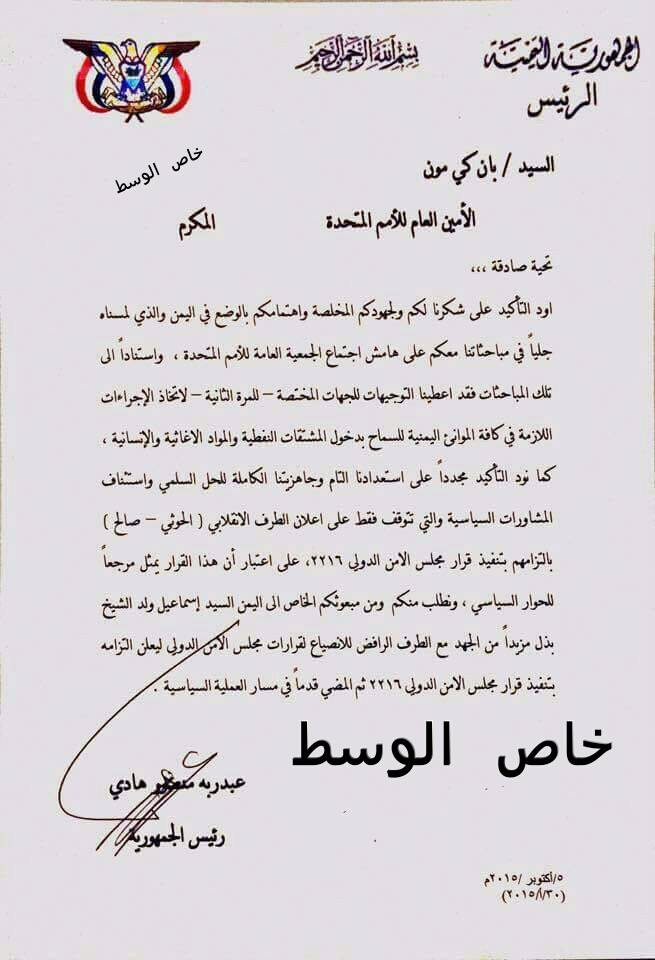 الجمهورية اليمنية
بسم الله الرحمن الرحيم
الرئيس
خاص الوسط
السيد / بان كي مون
الأمين العام للأمم المتحدة المكرم
تحية صادقة ،،،
اود التأكيد على شكرنا لكم ولجهودكم المخلصة واهتمامكم بالوضع في اليمن والذي لمسناه
جلياً في مباحثاتنا معكم على هامش اجتماع الجمعية العامة للأمم المتحدة ، واستناداً الى
تلك المباحثات فقد اعطينا التوجيهات للجهات المختصة – للمرة الثانية – لاتخاذ الإجراءات
اللازمة في كافة الموانئ اليمنية للسماح بدخول المشتقات النفطية والمواد الاغاثية والإنسانية ،
كما نود التأكيد مجدداً على استعدادنا التام وجاهزيتنا الكاملة للحل السلمي واستئناف
المشاورات السياسية والتي تتوقف فقط على اعلان الطرف الانقلابي ( الحوثي – صالح )
بالتزامهم بتنفيذ قرار مجلس الامن الدولي ٢٢١٦، على اعتبار أن هذا القرار يمثل مرجعاً
للحوار السياسي ، ونطلب منكم ومن مبعوثكم الخاص الى اليمن السيد إسماعيل ولد الشيخ
بذل مزيداً من الجهد مع الطرف الرافض للانصياع لقرارات مجلس الامن الدولي ليعلن التزامه
بتنفيذ قرار مجلس الامن الدولي ٢٢١٦ ثم المضي قدماً في مسار العملية السياسية .
خاص الوسط
عبدربه منصور هادي
رئيس الجمهورية
٥/أكتوبر /٢٠١٥م
(٢٠١٥/أ/٣٠)